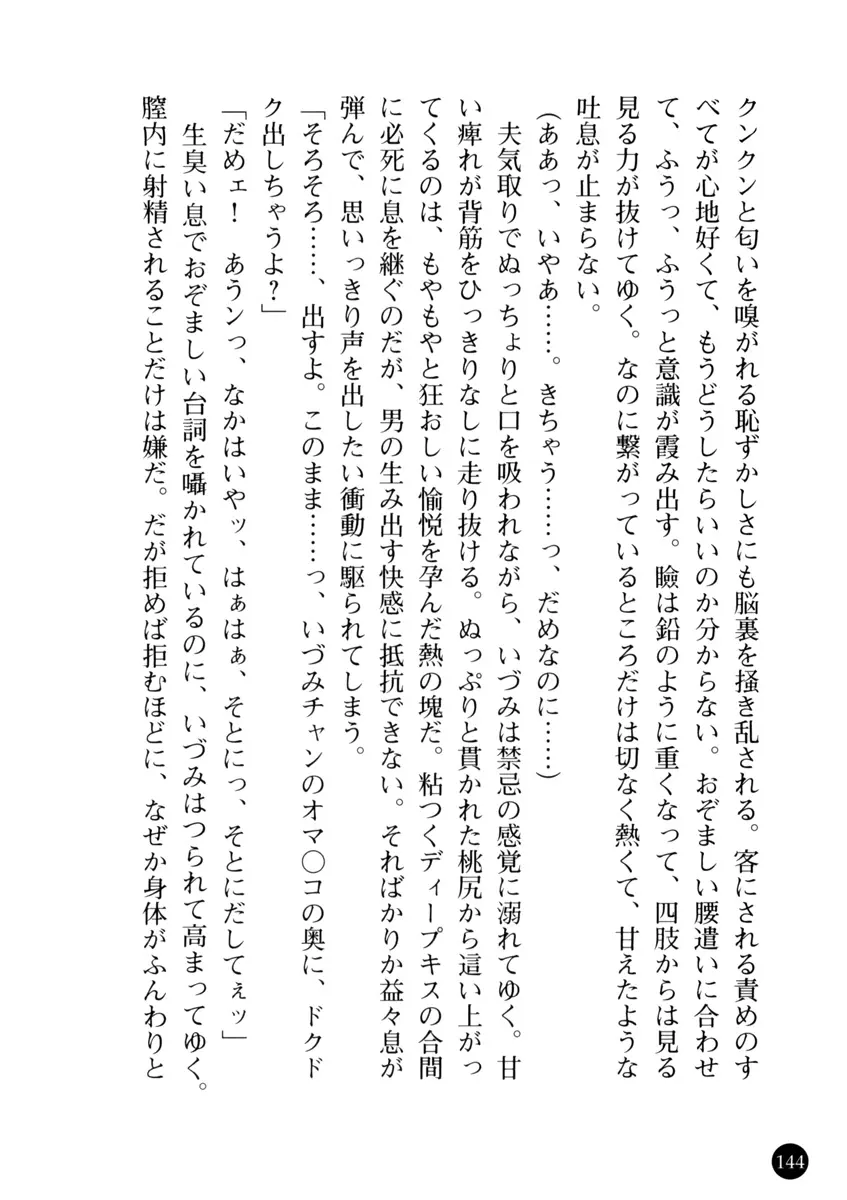 クンクンと匂いを嗅がれる恥ずかしさにも脳裏を掻き乱される。客にされる責めのす
べてが心地好くて、もうどうしたらいいのか分からない。おぞましい腰遣いに合わせ
て、ふうっ、ふうっと意識が霞み出す。瞼は鉛のように重くなって、四肢からは見る
見る力が抜けてゆく。なのに繋がっているところだけは切なく熱くて、甘えたような
吐息が止まらない。
(ああっ、いやあ……。きちゃう……っ、だめなのに……)
夫気取りでぬっちょりと口を吸われながら、いづみは禁忌の感覚に溺れてゆく。甘
い痺れが背筋をひっきりなしに走り抜ける。ぬっぷりと貫かれた桃尻から這い上がっ
てくるのは、もやもやと狂おしい愉悦を孕んだ熱の塊だ。粘つくディープキスの合間
に必死に息を継ぐのだが、男の生み出す快感に抵抗できない。そればかりか益々息が
弾んで、思いっきり声を出したい衝動に駆られてしまう。
「そろそろ……、出すよ。このまま……っ、いづみチャンのオマ〇コの奥に、ドクド
ク出しちゃうよ?」
「だめェ! あうンっ、なかはいやッ、はぁはぁ、そとにっ、そとにだしてぇッ」
生臭い息でおぞましい台詞を囁かれているのに、いづみはつられて高まってゆく。
膣内に射精されることだけは嫌だ。だが拒めば拒むほどに、なぜか身体がふんわりと
144